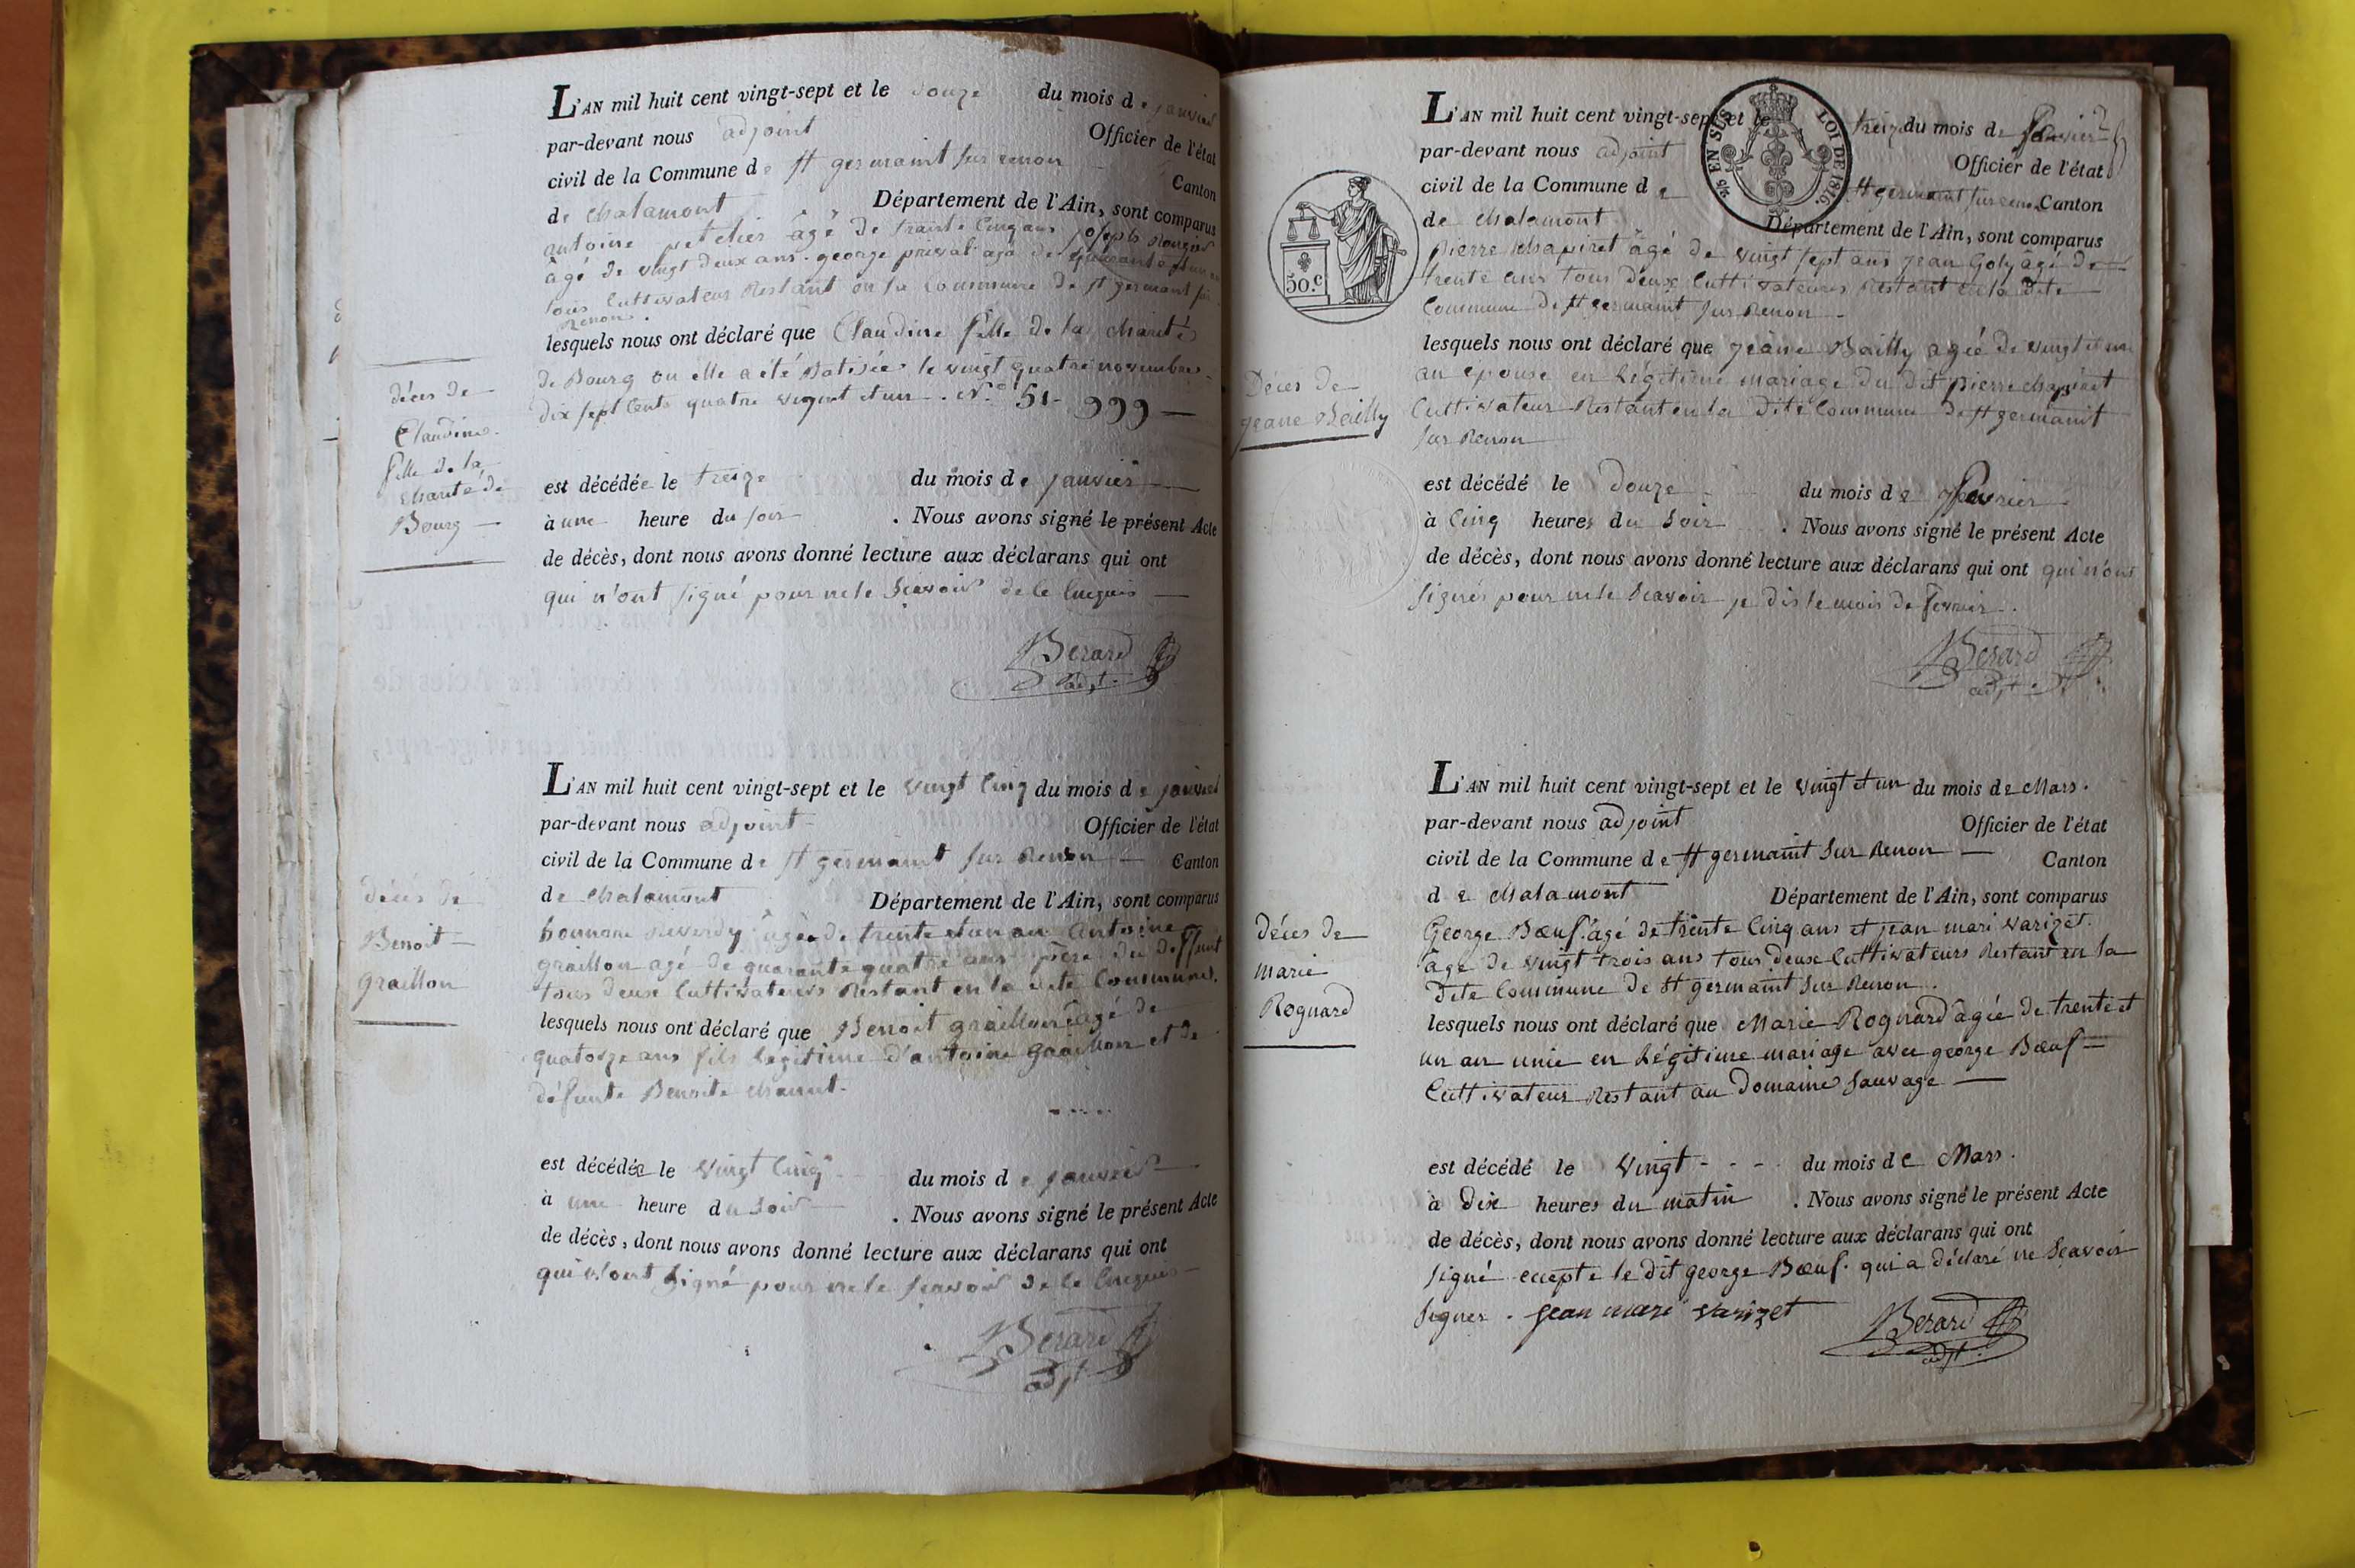 L'AN mil huit cent vingt-sept et le douze du mois de janvier
par-devant nous adjoint Officier de l'état
civil de la Commune de st germaint sur renon Canton
de chalamont Département de l'Ain, sont comparus
antoine âgé de trante cinq ans joseph
âgé de vingt deux ans. george privat agé de quarante et un an
tous cuttivateur Restant en la commune de st germaint sur
Renon.
lesquels nous ont déclaré que Claudine fille de la charité
de Bourg ou elle a été Batisée le vingt quatre novembre
dix sept cents quatre vingnt et un. N.° 51- 999
décés de
Claudine
fille de la
charité de
Bourg
est décédée le treize du mois de janvier
à une heure du soir. Nous avons signé le présent Acte
de décès, dont nous avons donné lecture aux déclarans qui ont
qui n'ont signé pour ne le scavoir de le enquis
Berard
adjt.
L'AN mil huit cent vingt-sept et le vingt cinq du mois de janvier
par-devant nous adjoint Officier de l'état
civil de la Commune de st germaint sur Renon Canton
de chalamont Département de l'Ain, sont comparus
Reverdy âgé de trente et un an antoine
graillon agé de quarante quatre ans père du deffunt
tous deux cuttivateurs Restant en la dite Commune.
décés de
Benoit
graillon
lesquels nous ont déclaré que Benoit graillon âgé de
quatorze ans fils legitime d'antoine Graillon et de
défunte Benoite
est décédée le vingt cinq du mois de janvier
à une heure du soir. Nous avons signé le présent Acte
de décès, dont nous avons donné lecture aux déclarans qui ont
qui n'ont signé pour ne le scavoir de le enquis
Berard
adjt.
2/5 EN SUS LOI DE 1816.
50.c
L'AN mil huit cent vingt-sept et le treize du mois de
par-devant nous adjoint Officier de l'état
civil de la Commune de st germaint sur renon Canton
de chalamont Département de l'Ain, sont comparus
pierre chapiret âgé de vingt sept ans jean Goly agé de
trente ans tous deux cuttivateurs Restant en la dite
Commune de st germaint sur Renon
lesquels nous ont déclaré que jeane Bailly agée de vingt et un
an epouse en légitime mariage du dit pierre chapiret
cuttivateur Restant en la dite Commune de st germaint
sur Renon
Décés de
jeane Bailly
est décédé le douze du mois de
à cinq heures du soir. Nous avons signé le présent Acte
de décès, dont nous avons donné lecture aux déclarans qui ont qui n'ont
signés pour ne le scavoir je dis le mois de
Berard
adjt.
L'AN mil huit cent vingt-sept et le vingt et un du mois de Mars.
par-devant nous adjoint Officier de l'état
civil de la Commune de st germaint sur Renon Canton
de chalamont Département de l'Ain, sont comparus
George Bœuf. agé de trente cinq ans et jean mari varizet.
âge de vingt trois ans tous deux Cuttivateurs Restant en la
dite Commune de st germaint sur Renon.
Décés de
Marie
Rognard
lesquels nous ont déclaré que Marie Rognard âgée de trente et
un an unie en légitime mariage avec george Bœuf
Cuttivateur Restant au Domaine Sauvage
est décédé le vingt - - - du mois de Mars.
à dix heures du matin. Nous avons signé le présent Acte
de décès, dont nous avons donné lecture aux déclarans qui ont
signé ecepte le dit george Bœuf. qui a déclaré ne scavoir
signer. jean mari varizet Berard
adjt.